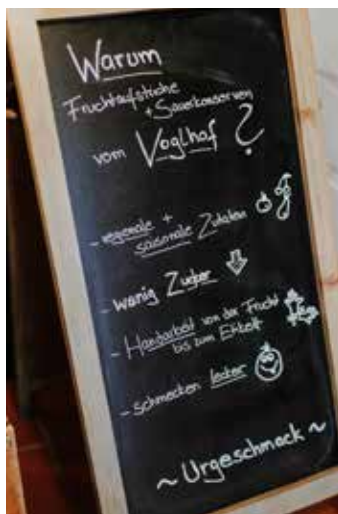 Warum
Fruchtaufstriche
+ Sauerkonserven
vom Voglhof?
- regionale +
saisonale Zutaten
- wenig Zucker
- Handarbeit von der Frucht
bis zum Etikett
- schmecken lecker
~ Urgeschmack ~